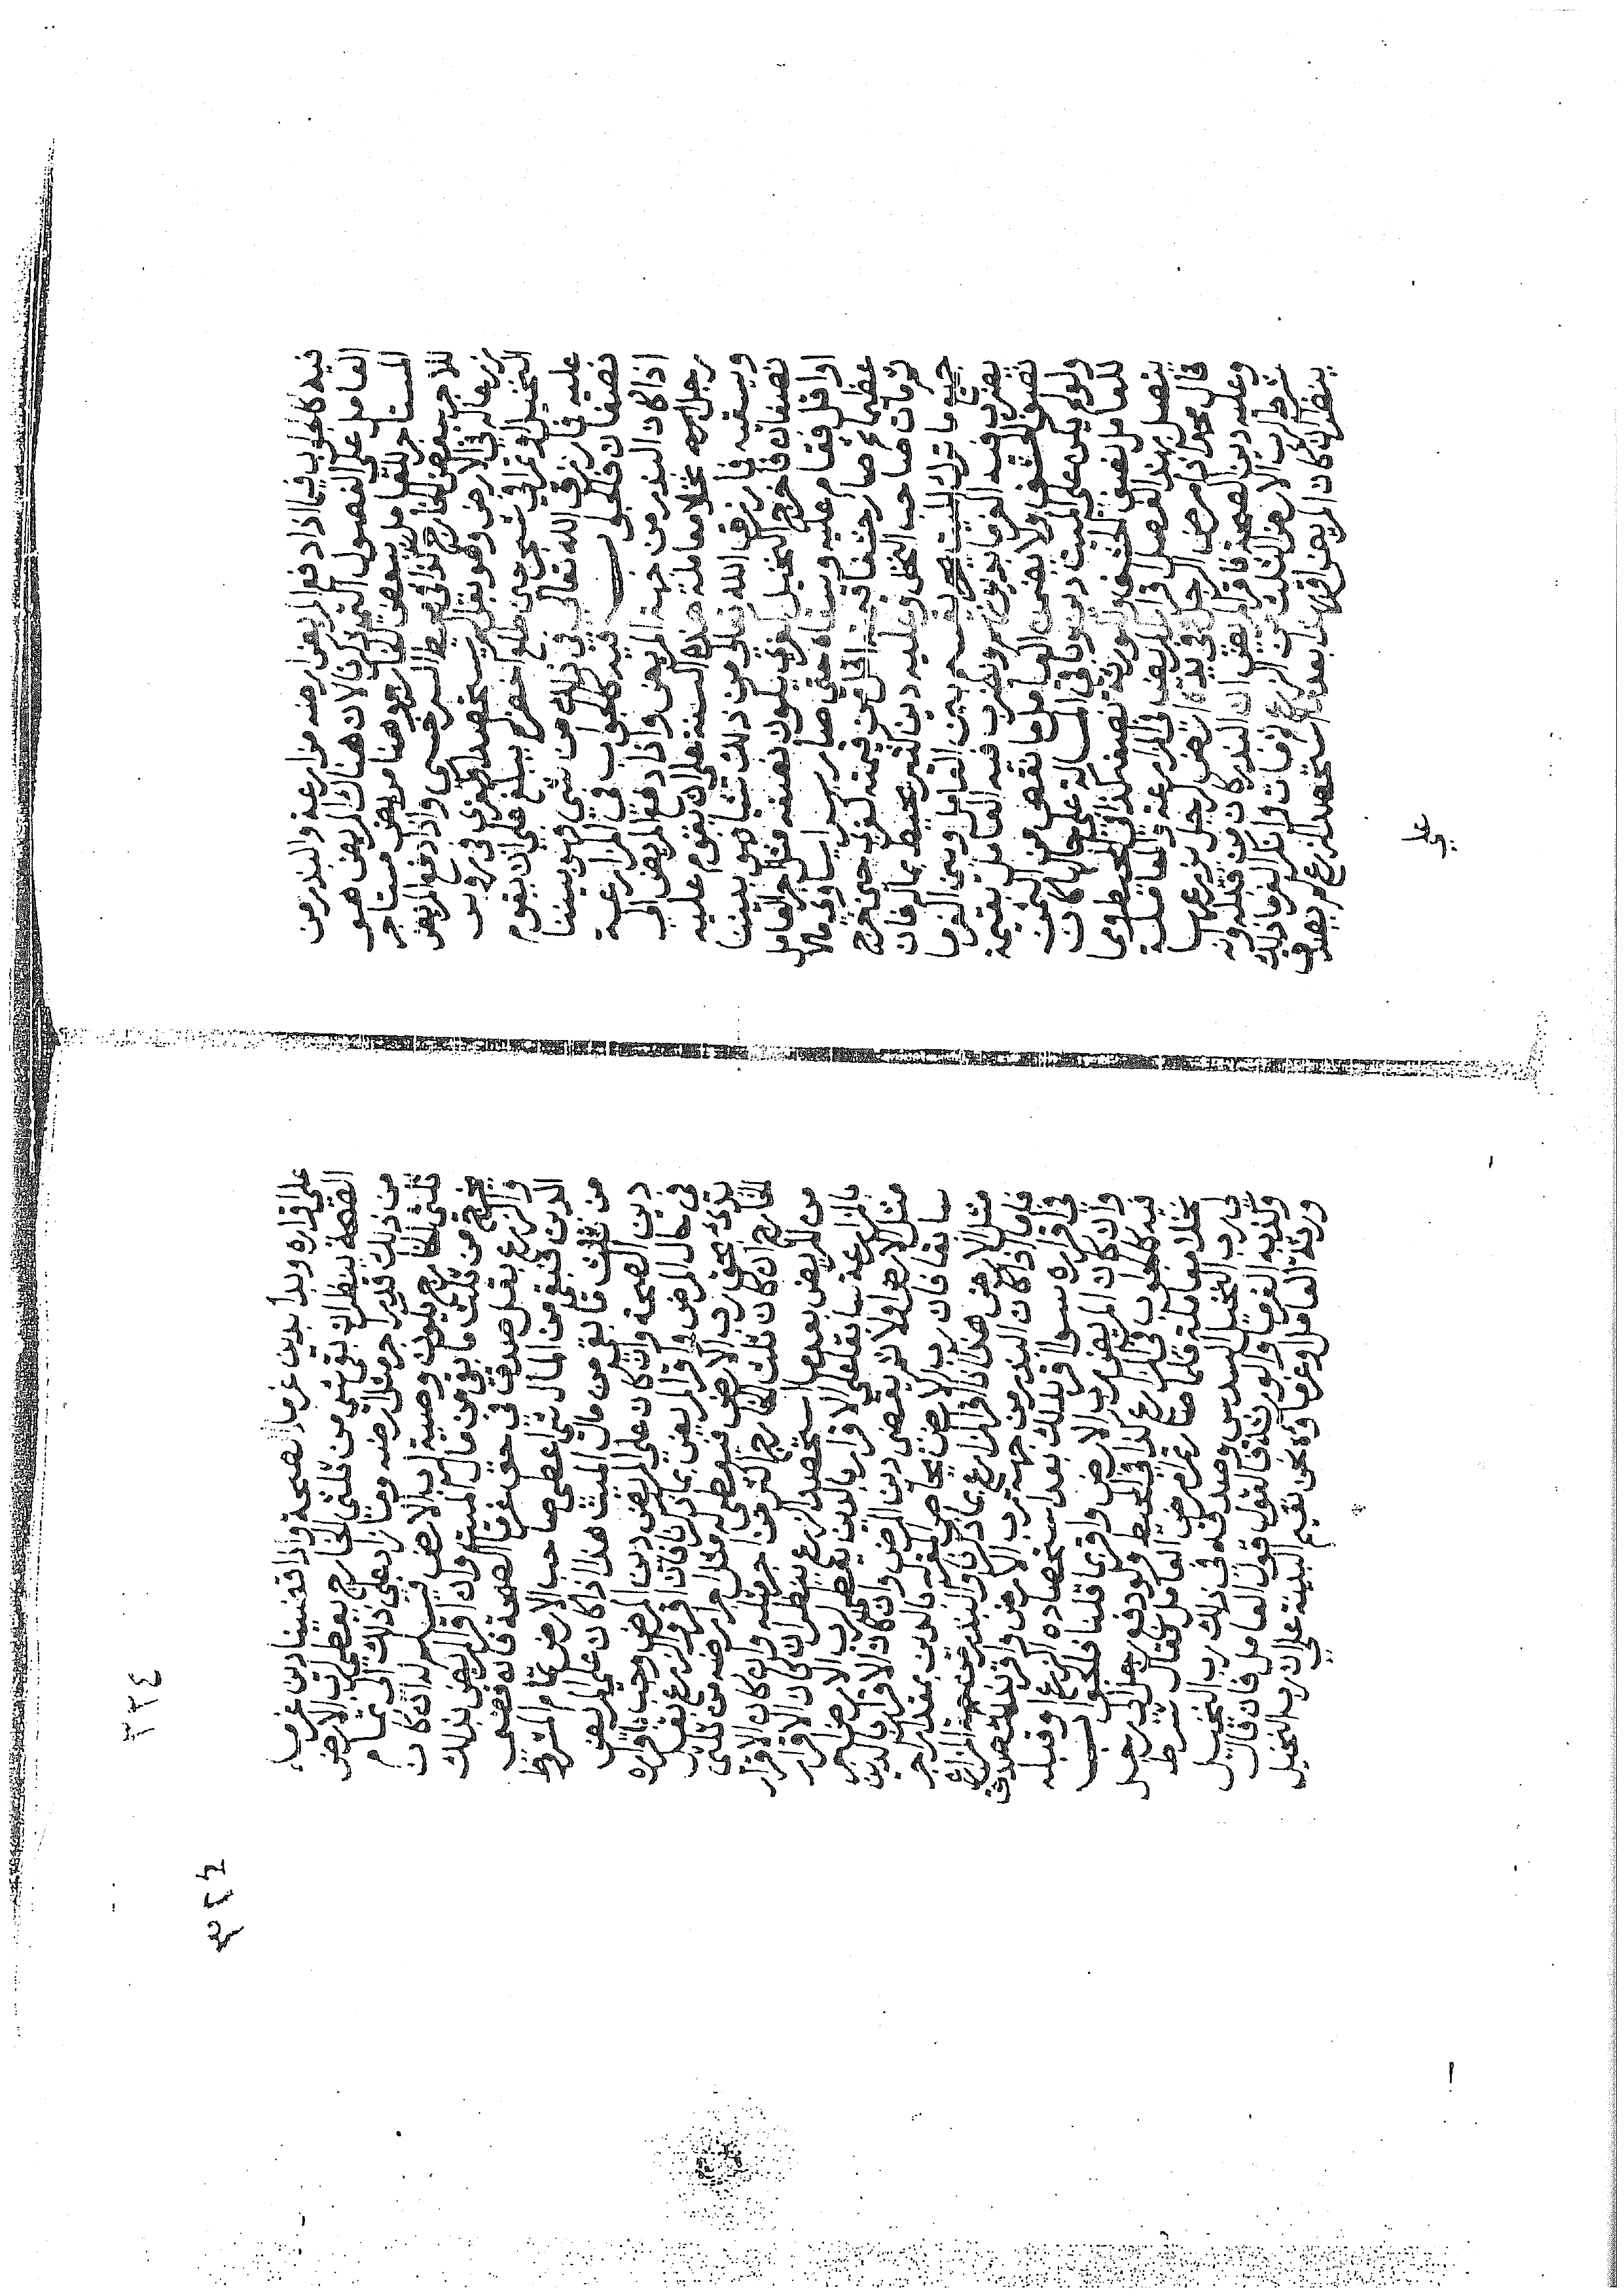 فيه كالجواب فيما اذا دفع المريض ارضه مزارعة والبذر من
العامل على الفصول التي ذكرنا لان هناك المريض هو
المستاجر للعامل ببعض الخارج وهنا مريض مستاجر
للاجر ببعض الخارج كذا في محيط السرخسي واذا دفع المريض
زرعا له في الارض وهو بقل لم يستحصد او كفرى في روس
النخيل او ثمرا في شجر حين طلع اخضر لم يبلغ على ان يقوم
عليه فما رزق الله تعالى في ذلك من شي فهو بيننا
نصفان فالجواب فيه كالجواب في المزارعة
اذا كان البذر من جهة المريض واذا دفع المريض الى
رجل نخلا معاملة هذه السنة على ان يقوم عليه
ويسقيه فما رزق الله تعالى من ذلك شيا فهو بيننا
نصفان فاخرج النخيل كفرى يكون نصفه مثل اجر العامل
او اقل فقام عليه وسقاه حتى صار بسرا يساوي مالا
عظيما ثم صار حشفا قيمته اقل من قيمته كفرى حين خرج
ثم مات صاحب النخل وعليه دين كثير يحيط بماله فان
جميع ما ترك الميت يقسم بين العامل وبين الغرما
يضرب فيه الغرما بديونهم ويضرب فيه العامل بقيمة
نصف الحشف ولا يضمن العامل ما نقص من الثمن
ولو لم يكن على الميت دين وباقي المسالة على حالها كان
للعامل نصف الحشف وللورثة نصفه كذا في المحيط ومما
يتصل بهذا الفصل اقرار المريض في المزارعة والمعاملة
قال محمد اذا مرض الرجل وفي يده ارض لرجل يزرعها
وعليه دين الصحة فاقر المريض ان البذر كان من قبله وانه
شرط لرب الارض الثلثين من الزرع ثم مات وانكر الغرما ذلك
ينظر ان كان المريض اقر بهذا بعد ما استحصد الزرع لم يصدق
على
على اقراره وبدا بدين غرماء الصحة واذا قضينا دين غرماء
الصحة ينظر ان بقي شي من ثلثي الخارج يعطى رب الارض
من ذلك قدر اجر مثل ارضه وما زاد على ذلك الى تمام
ثلثي الخارج يكون وصية لرب الارض فيسلم له ان كان
يخرج من ثلث ما بقي من مال الميت وان اقر المريض بذلك
والزرع بقل صدق في حق غرما الصحة فانه قضى
الدين فبقي من المال شي اعطى صاحب الارض تمام المشروط
من ثلث ما بقي من مال الميت هذا اذا كان على المريض
دين الصحة وان كان على المريض دين المرض وجب باقراره
في حال المرض واقر المريض بما ذكرنا فان اقر والزرع بقل
يبدا بحق رب الارض فيعطى له مثل اجر ارضه من ثلثي
الخارج ان كان ثلثا الخارج اكثر من اجر مثله وان كان الاقرار
من المريض بعد ما استحصد الزرع ينظر ان كان الاقرار
بالمزارعة سابقا على الاقرار بالدين يعطى رب الارض اجر
مثل الارض اولا ثم يقضى دين المرض وان كان الاقرار بالدين
سابقا فان رب الارض يحاص المقر له بالدين بمقدار اجر
مثل الارض هذا اذا اقر المزارع بما ذكرنا والبذر من جهة المزارع
فاما اذا كان البذر من جهة رب الارض واقر بذلك صدق
في اقراره سوا اقر بذلك بعد استحصاده الزرع او قبله
وان كان المريض رب الارض واقر بما قلنا فالجواب
فيه كالجواب في المزارع كذا في المحيط ولو دفع رجل الى رجل
نخلا معاملة فلما صار تمرا مرض العامل فقال شرط
لي رب النخيل السدس وصدقه في ذلك رب النخيل
وكذبه الغرما والورثة فالقول قول العامل فان قال
ورثة العامل او غرماؤه نحن نقيم البينة على ان رب النخيل
٣٣٤
٣٤٦